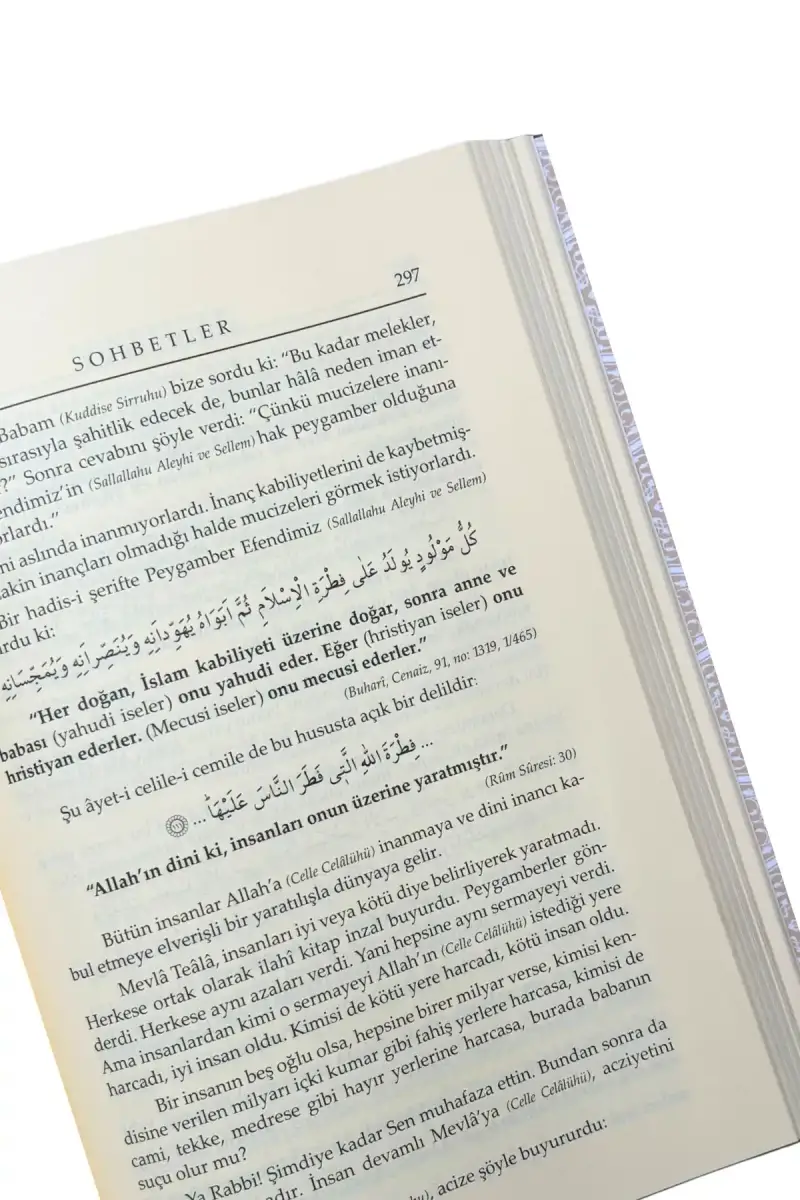 297
SOHBETLER
Babam (Kuddise Sirruhu) bize sordu ki: “Bu kadar melekler,
sırasıyla şahitlik edecek de, bunlar hâlâ neden iman et-
?” Sonra cevabını şöyle verdi: “Çünkü mucizelere inanı-
endimiz’in (Sallallahu Aleyhi ve Sellem) hak peygamber olduğuna
orlardı.”
ni aslında inanmıyorlardı. İnanç kabiliyetlerini de kaybetmiş-
akin inançları olmadığı halde mucizeleri görmek istiyorlardı.
Bir hadis-i şerifte Peygamber Efendimiz (Sallallahu Aleyhi ve Sellem)
urdu ki:
كُلُّ مَوْلُودٍ يُولَدُ عَلٰى فِطْرَةِ الْاِسْلَامِ ثُمَّ اَبَوَاهُ يُهَوِّدَانِهِ وَيُنَصِّرَانِهِ وَيُمَجِّسَانِهِ
“Her doğan, İslam kabiliyeti üzerine doğar, sonra anne ve
babası (yahudi iseler) onu yahudi eder. Eğer (hristiyan iseler) onu
hristiyan ederler. (Mecusi iseler) onu mecusi ederler.”
(Buharî, Cenaiz, 91, no: 1319, 1/465)
Şu âyet-i celile-i cemile de bu hususta açık bir delildir:
... فِطْرَةَ اللّٰهِ الَّتِى فَطَرَ النَّاسَ عَلَيْهَاۜ ...
“Allah’ın dini ki, insanları onun üzerine yaratmıştır.”
(Rûm Sûresi: 30)
Bütün insanlar Allah’a (Celle Celâlühü) inanmaya ve dini inancı ka-
bul etmeye elverişli bir yaratılışla dünyaya gelir.
Mevlâ Teâlâ, insanları iyi veya kötü diye belirliyerek yaratmadı.
Herkese ortak olarak ilahî kitap inzal buyurdu. Peygamberler gön-
derdi. Herkese aynı azaları verdi. Yani hepsine aynı sermayeyi verdi.
Ama insanlardan kimi o sermayeyi Allah’ın (Celle Celâlühü) istediği yere
harcadı, iyi insan oldu. Kimisi de kötü yere harcadı, kötü insan oldu.
Bir insanın beş oğlu olsa, hepsine birer milyar verse, kimisi ken-
disine verilen milyarı içki kumar gibi fahiş yerlere harcasa, kimisi de
cami, tekke, medrese gibi hayır yerlerine harcasa, burada babanın
suçu olur mu?
Ya Rabbi! Şimdiye kadar Sen muhafaza ettin. Bundan sonra da
dır. İnsan devamlı Mevlâ’ya (Celle Celâlühü), acziyetini
acize şöyle buyururdu: